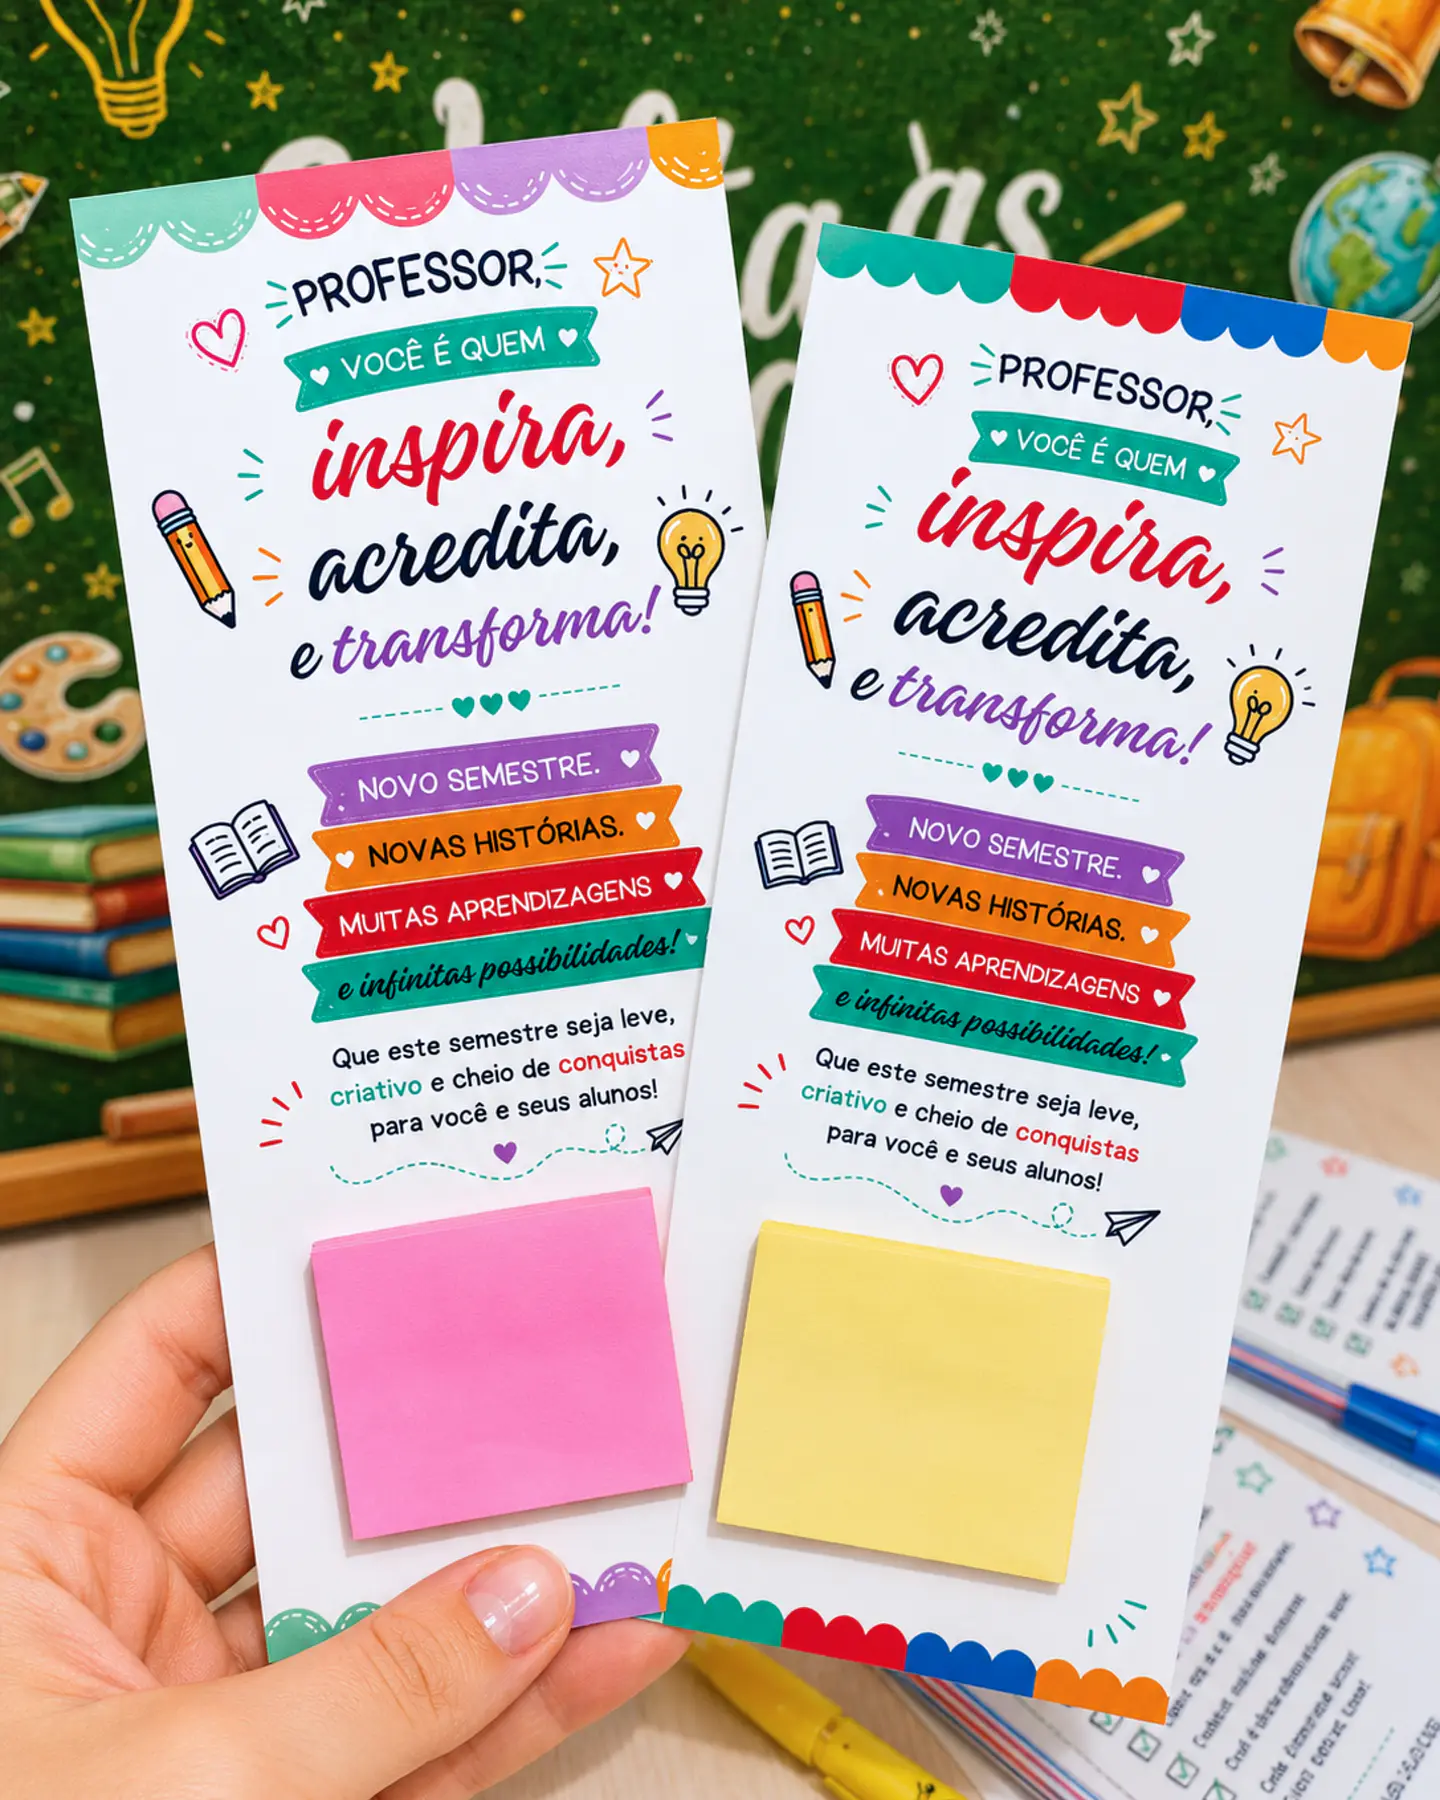 PROFESSOR,
VOCÊ É QUEM
inspira,
acredita,
e transforma!
NOVO SEMESTRE.
NOVAS HISTÓRIAS.
MUITAS APRENDIZAGENS
e infinitas possibilidades!
Que este semestre seja leve,
criativo e cheio de conquistas
para você e seus alunos!
PROFESSOR,
VOCÊ É QUEM
inspira,
acredita,
e transforma!
NOVO SEMESTRE.
NOVAS HISTÓRIAS.
MUITAS APRENDIZAGENS
e infinitas possibilidades!
Que este semestre seja leve,
criativo e cheio de conquistas
para você e seus alunos!
às